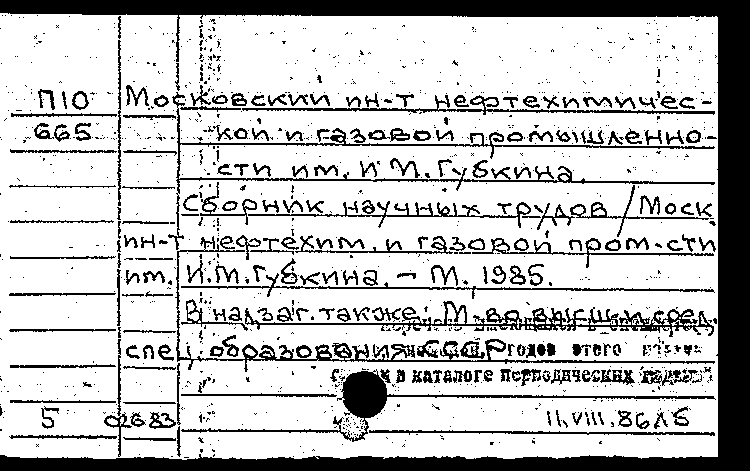 П10 Московский ин-т нефтехимичес-
665 кой и газовой промышленно-
сти им. И.М.Губкина.
Сборник научных трудов / Моск.
ин-т нефтехим. и газовой пром-сти
им. И.М.Губкина. – М., 1985.
В надзаг. также: М-во высш. и сред.
спец. образования СССР годов этого
в каталоге периодических
5 02683 11.VIII.86 ЛБ